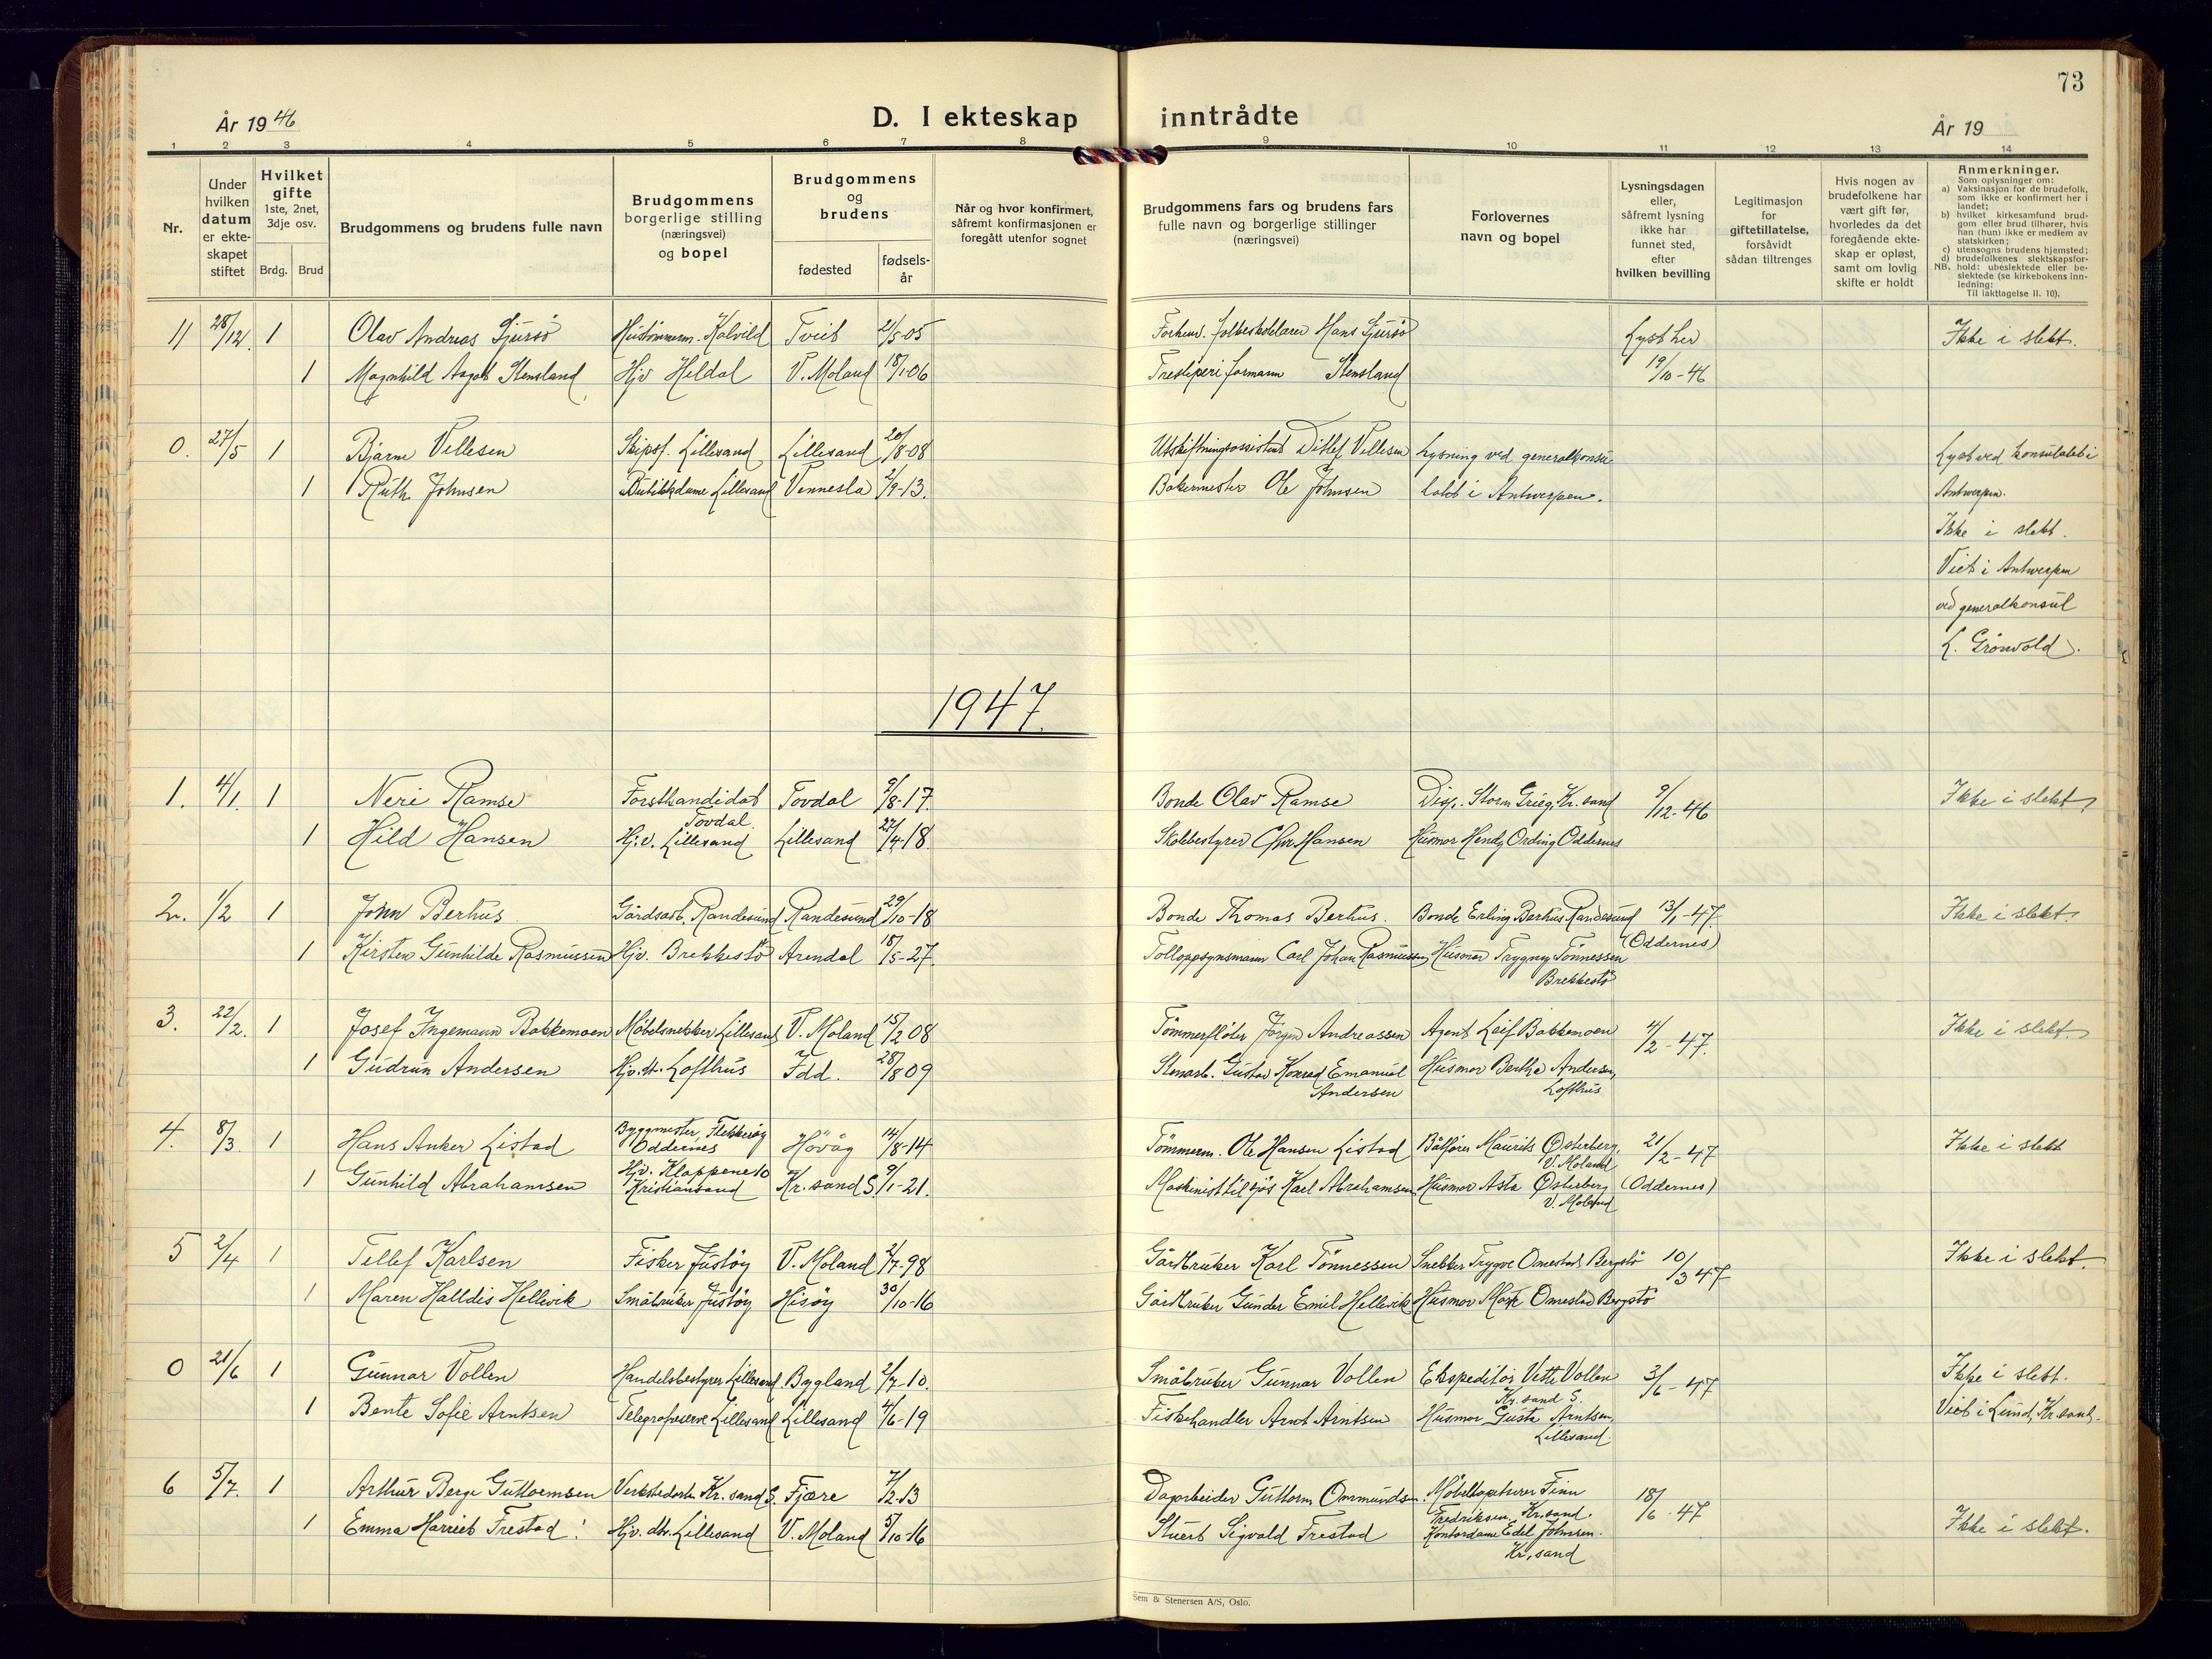 73
År 1946
D. I ekteskap inntrådte
År 19
1 2 3 4 5 6 7 8 9 10 11 12 13 14
Nr.
Under hvilken datum er ekteskapet stiftet
Hvilket gifte 1ste, 2net, 3dje osv.
Brdg. Brud
Brudgommens og brudens fulle navn
Brudgommens borgerlige stilling (næringsvei) og bopel
Brudgommens og brudens
fødested
fødselsår
Når og hvor konfirmert, såfremt konfirmasjonen er foregått utenfor sognet
Brudgommens fars og brudens fars fulle navn og borgerlige stillinger (næringsvei)
Forlovernes navn og bopel
Lysningsdagen eller, såfremt lysning ikke har funnet sted, efter hvilken bevilling
Legitimasjon for giftetillatelse, forsåvidt sådan tiltrenges
Hvis nogen av brudefolkene har vært gift før, hvorledes da det foregående ekteskap er opløst, samt om lovlig skifte er holdt
Anmerkninger.
Som oplysninger om:
a) Vaksinasjon for de brudefolk, som ikke er konfirmert her i landet;
b) hvilket kirkesamfund brudgom eller brud tilhører, hvis han (hun) ikke er medlem av statskirken;
c) utensogns brudens hjemsted;
d) brudefolkenes slektskapsforhold: ubeslektede eller beslektede (se kirkebokens innledning:
NB. Til iakttagelse II. 10).
11 28/12. 1 Olav Andreas Sjursö Kalvild Tveit 21/5-05 Forhenv. folkeskolelærer Hans Sjursö Lyst her Ikke i slekt.
1 Magnhild Aagot Stensland Hjv Heldal V. Moland 18/1-06 Tresliperi formann Stensland 19/10-46
0. 27/5 1 Bjarne Vellesen Skipsf. Lillesand Lillesand 20/8-08 Utskiftningsassistent Ditlef Vellesen Lysning ved generalkonsu Lyst ved konsulatet i
1 Ruth Johnsen Butikkdame Lillesand Vennesla 2/9-13. Bakermester Ole Johnsen latet i Antwerpen. Antwerpen.
Ikke i slekt.
Viet i Antwerpen
ved generalkonsul
L. Grönvold.
1947
1. 4/1. 1 Neri Ramse Forstkandidat Tovdal Tovdal 9/8-17. Bonde Olav Ramse Disp. Storm Grieg, Kr. sand 9/12-46 Ikke i slekt,
1 Hild Hansen Hj.v. Lillesand Lillesand 22/4-18. Skolebestyrer Chr Hansen Husmor Hendy Ording Oddernes
2. 1/2 1 John Berhus Gårdsarb. Randesund Randesund 29/10-18 Bonde Thomas Berhus. Bonde Erling Berhus Randesund 13/1-47. Ikke i slekt.
1 Kirsten Gunhilde Rasmussen Hjv. Brekkestö Arendal 18/5-27. Tolloppsynsmann Carl Johan Rasmussen Husmor Trygny Tönnessen (Oddernes)
Brekkestö
3. 22/2. 1 Josef Ingemann Bakkemoen Möbelsnekker Lillesand V. Moland 15/2 08 Tömmerflöter Jörgen Andreassen Agent Leif Bakkemoen 4/2-47. Ikke i slekt.
1 Gudrun Andersen Hjv. Lofthus Idd. 28/8 09 Stenarb. Gustav Konrad Emanuel Husmor Berthe Andersen,
Andersen Lofthus
4. 8/3. 1 Hans Anker Listad Byggmester, Flekkeröy Oddernes Hövåg 14/8-14 Tömmerm. Ole Hansen Listad Båtförer Maurits Østerberg, V. Moland 21/2-47 Ikke i slekt
1 Gunhild Abrahamsen Hjv. Klappene 10 Kristiansand Kr. sand S 9/1-21. Maskinist til sjös Karl Abrahamsen Husmor Asta Østerberg (Oddernes)
V. Moland
5 2/4 1 Tellef Karlsen Fisker Justöy V. Moland 2/7-98 Gårdbruker Karl Tönnessen Snekker Trygve Omestad, Bergstö 10/3 47 Ikke i slekt.
1 Maren Halldis Hellevik Småbruker Justöy Hisöy 30/10-16 Gårdbruker Gunder Emil Hellevik Husmor Omestad Bergstö
0 21/6 1 Gunnar Vollen Handelsbestyrer Lillesand. Bygland 2/7-10. Småbruker Gunnar Vollen Ekspeditör Vollen Kr. sand S. 3/6-47 Ikke i slekt.
1 Bente Sofie Arntsen Telegrafreserve Lillesand Lillesand 4/6-19 Fiskehandler Arnt Arntsen Husmor Guste Arntsen, Viet i Lund, Kr. sand.
Lillesand.
6 5/7. 1 Arthur Berge Guttormsen Verkstedarb. Kr. sand S. Fjære 7/2-13 Dagarbeider Guttorm Ommundsen. Möbeltapetserer Finn 18/6-47
Fredriksen, Kr. sand.
1 Emma Harriet Frestad. Hjv. dtr. Lillesand V. Moland 5/10-16 Stuert Sigvald Frestad Kontordame Edel Johnsen. Ikke i slekt.
Kr, sand
Sem & Stenersen A/S, Oslo.